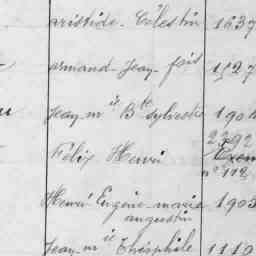 aristide-Célestin 1237
armand-Jean-fois 1527
Jean-mie Bte Sylvestre 1904
2292
Félix Henri
n° 112
Henri Eugène-maria 1903
augustin
Jean-mie Théophile 1119